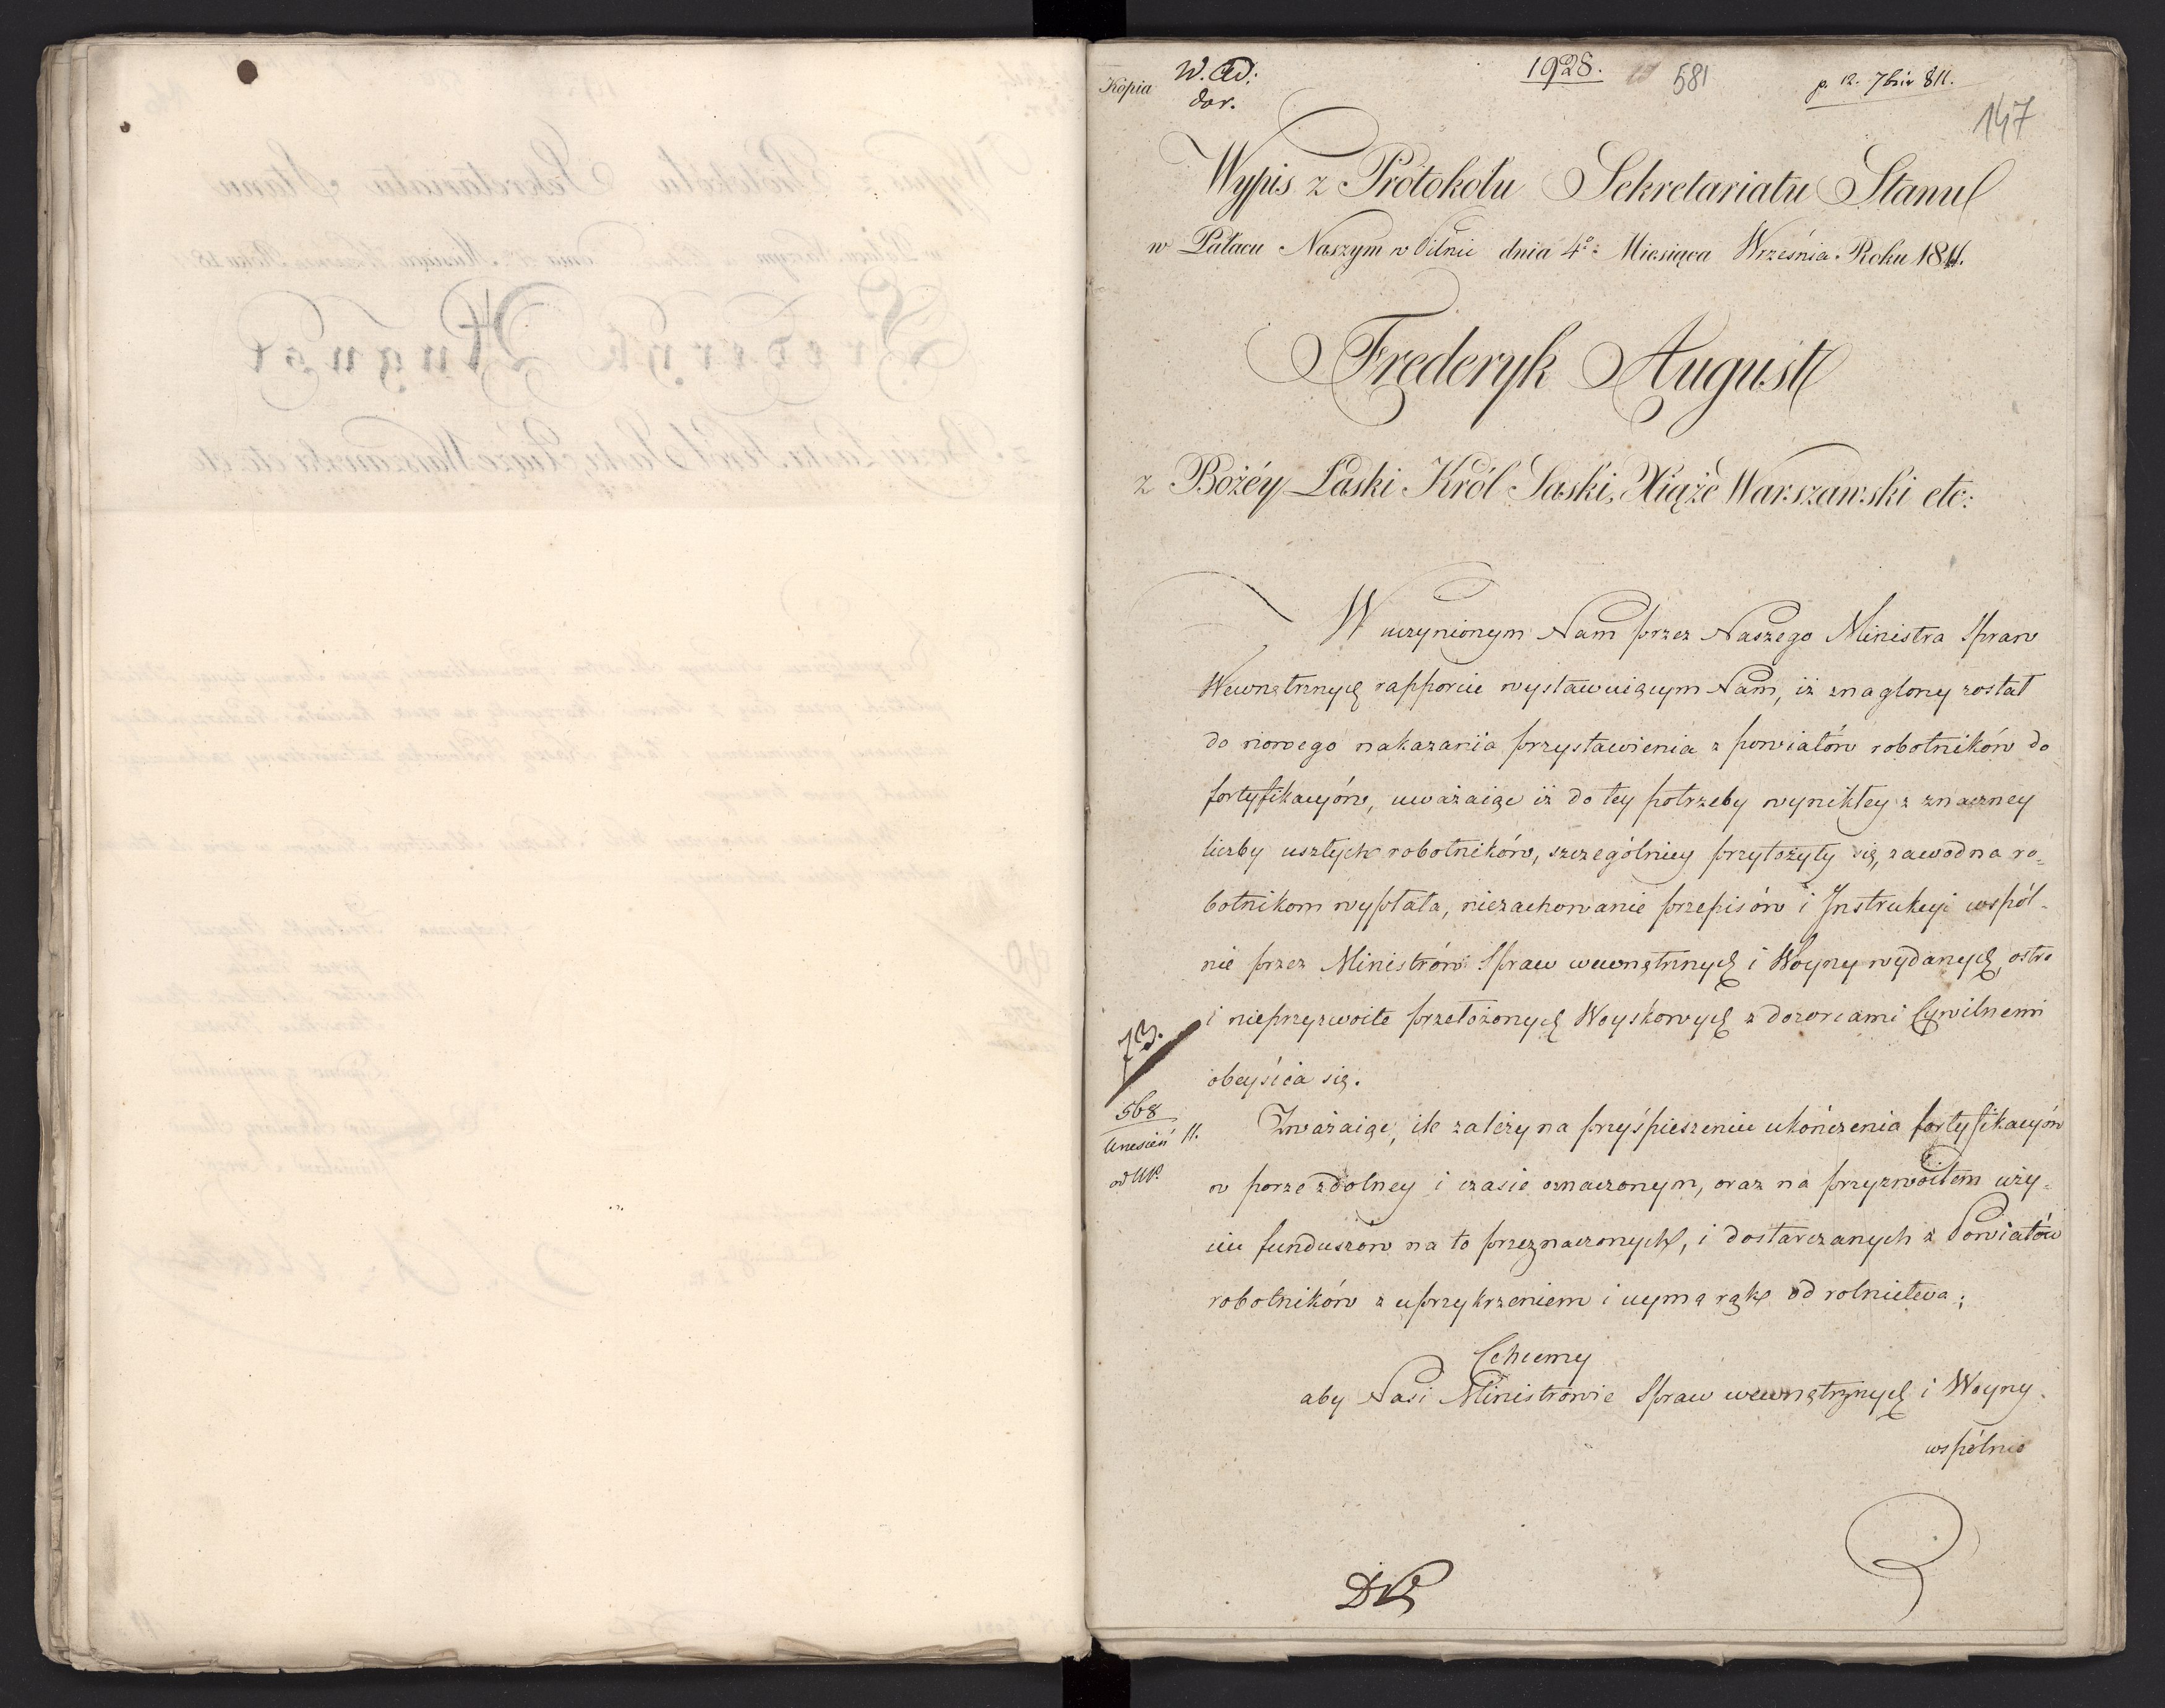 Kopia W. Ad: 1928. 581 p. 12. 7bris 811.
dor.
147
Wypis z Protokołu Sekretariatu Stanu
w Pałacu Naszym w Pilnic dnia 4º: Miesiąca Września. Roku 1811.
Frederyk August
z Bożéy Łaski Król Saski, Xiąże Warszawski etc:
W uczynionym Nam przez Naszego Ministra Spraw
Wewnętrznych rapporcie wystawuiącym Nam, iż znaglony został
do nowego nakazania przystawienia z powiatów robotników do
fortyfikacyów, uważaiąc iż do tey potrzeby wynikłey z znaczney
liczby uszłych robotników, szczególniey przyłożyły się, zawodna ro=
botnikom wypłata, niezachowanie przepisów i Instrukcyi wspól-
nie przez Ministrów Spraw wewnętrznych i Woyny wydanych, ostre
i nieprzyzwoite przełożonych Woyskowych z dozorcami Cywilnemi
obeyścia się.
73.
568
Wrzesień 11.
Zważaiąc, ile zależy na przyśpieszeniu ukończenia fortyfikacyów
w porze zdolney i czasie oznaczonym, oraz na przyzwoitem uży=
ciu funduszów na to przeznaczonych, i dostarczanych z Powiatów
robotników z uprzykrzeniem i uymą rąk od rolnictwa;
Chcemy
aby Nasi Ministrowie Spraw wewnętrznych i Woyny.
wspólnie